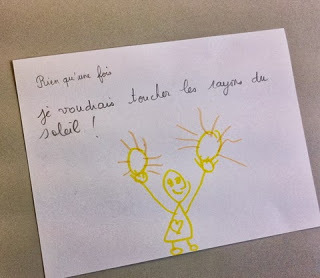 Rien qu'une fois
je voudrais toucher les rayons du
soleil !